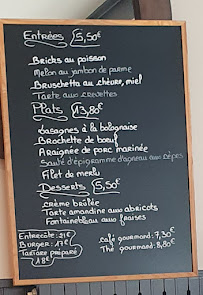 Entrées 5,50€
Bricks au poisson
Melon au jambon de parme
Bruschetta au chèvre, miel
Tarte aux crevettes
Plats 13,80€
Lasagnes à la bolognaise
Brochette de boeuf
Araignée de porc marinée
Sauté d'épigramme d'agneau aux cèpes
Filet de merlu
Desserts 5,50€
Crème brûlée
Tarte amandine aux abricots
Fontainebleau aux fraises
Entrecôte: 21€
Burger: 17€
Tartare préparé
18€
Café gourmand: 7,30€
Thé gourmand: 8,80€